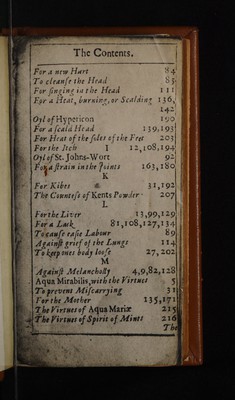 The Contents.
For a new Hurt 84
To cleanſe the Head 83
For ſinging in the Head 111
For a Heat, burning, or Scalding 136,
142
Oyl of Hypericon 190
For a ſcald Head 139,193
For Heat of the ſides of the Feet 203
For the Itch 12,108,194
I
Oyl of St. Johns-Wort 92
For a ſtrain in the Joints 163,180
K
For Kibes 31,192
The Counteſs of Kents Powder 207
L
For the Liver 13,99,129
For a Lask 81,108,127,134
To cauſe eaſie Labour 89
Againſt grief of the Lungs 114
To keep ones body looſe 27,202
M
Againſt Melancholly 4,9,82,128
Aqua Mirabilis, with the Virtues 5
To prevent Miſcarrying 31
For the Mother 135,171
The Virtues of Aqua Mariæ 215
The Virtues of Spirit of Mints 216
The